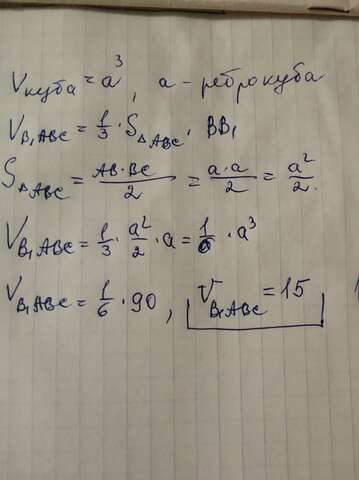 Vкуба = a³, a – ребро куба
V_B₁ABC = 1/3 · S△ABC · BB₁
S△ABC = AB·BC/2 = a·a/2 = a²/2.
V_B₁ABC = 1/3 · a²/2 · a = 1/6 · a³
V_B₁ABC = 1/6 · 90, V_B₁ABC = 15